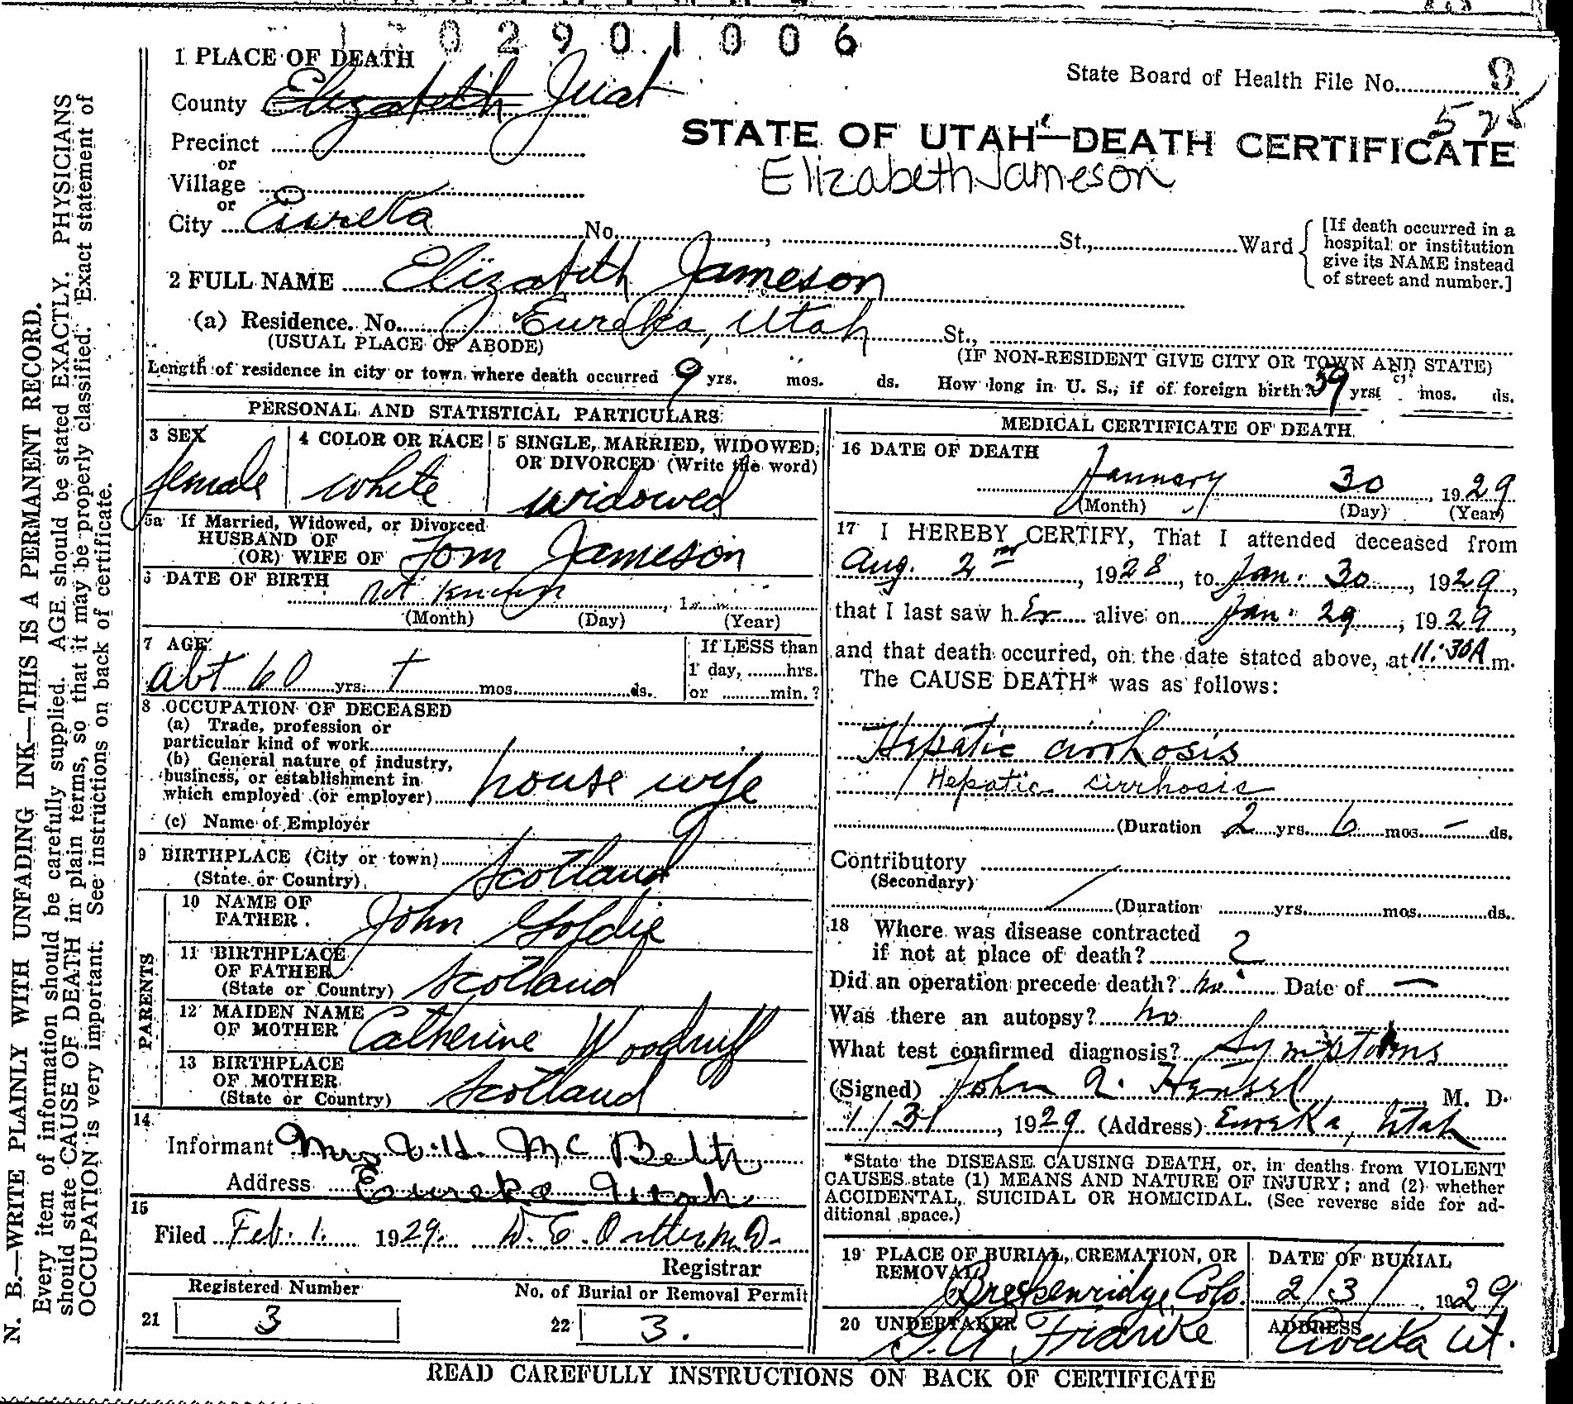 1 02901006
1 PLACE OF DEATH
State Board of Health File No. 9
County Elizabeth Juab
575
STATE OF UTAH—DEATH CERTIFICATE
Precinct
or
Elizabeth Jameson
Village
or
City Eureka No. , St., Ward
[If death occurred in a
hospital or institution
give its NAME instead
of street and number.]
2 FULL NAME Elizabeth Jameson
(a) Residence. No. Eureka, Utah St.,
(USUAL PLACE OF ABODE) (IF NON-RESIDENT GIVE CITY OR TOWN AND STATE)
Length of residence in city or town where death occurred 9 yrs. mos. ds. How long in U. S., if of foreign birth? 39 yrs. mos. ds.
PERSONAL AND STATISTICAL PARTICULARS
3 SEX
female
4 COLOR OR RACE
white
5 SINGLE, MARRIED, WIDOWED,
OR DIVORCED (Write the word)
widowed
5a If Married, Widowed, or Divorced
HUSBAND OF
(OR) WIFE OF Tom Jameson
6 DATE OF BIRTH
not known , 1
(Month) (Day) (Year)
7 AGE
abt 60 yrs. + mos. ds.
If LESS than
1 day, hrs.
or min.?
8 OCCUPATION OF DECEASED
(a) Trade, profession or
particular kind of work
(b) General nature of industry,
business, or establishment in
which employed (or employer) house wife
(c) Name of Employer
9 BIRTHPLACE (City or town)
(State or Country) Scotland
PARENTS
10 NAME OF
FATHER John Goldie
11 BIRTHPLACE
OF FATHER
(State or Country) Scotland
12 MAIDEN NAME
OF MOTHER Catherine Woodruff
13 BIRTHPLACE
OF MOTHER
(State or Country) Scotland
14
Informant Mrs Mc Beth
Address Eureka Utah
15
Filed Feb. 1. 1929. M.D.
Registrar
Registered Number
21 3
No. of Burial or Removal Permit
22 3.
MEDICAL CERTIFICATE OF DEATH
16 DATE OF DEATH
January 30, 1929
(Month) (Day) (Year)
17 I HEREBY CERTIFY, That I attended deceased from
Aug. 2nd, 1928, to Jan. 30, 1929,
that I last saw h er alive on Jan. 29, 1929,
and that death occurred, on the date stated above, at 11:30A m.
The CAUSE DEATH* was as follows:
Hepatic cirrhosis
Hepatic cirrhosis
(Duration 2 yrs. 6 mos. – ds.
Contributory
(Secondary)
(Duration yrs. mos. ds.
18 Where was disease contracted
if not at place of death? ?
Did an operation precede death? no. Date of —
Was there an autopsy? no
What test confirmed diagnosis? Symptoms
(Signed) John Q. Hensel, M. D.
1/31, 1929 (Address) Eureka, Utah
*State the DISEASE CAUSING DEATH, or, in deaths from VIOLENT
CAUSES state (1) MEANS AND NATURE OF INJURY; and (2) whether
ACCIDENTAL, SUICIDAL OR HOMICIDAL. (See reverse side for ad-
ditional space.)
19 PLACE OF BURIAL, CREMATION, OR
REMOVAL
Breckenridge, Colo.
DATE OF BURIAL
2/3/ 1929
20 UNDERTAKER
Franke
ADDRESS
Eureka Ut.
READ CAREFULLY INSTRUCTIONS ON BACK OF CERTIFICATE
N. B.—WRITE PLAINLY WITH UNFADING INK—THIS IS A PERMANENT RECORD.
Every item of information should be carefully supplied. AGE should be stated EXACTLY. PHYSICIANS
should state CAUSE OF DEATH in plain terms, so that it may be properly classified. Exact statement of
OCCUPATION is very important. See instructions on back of certificate.